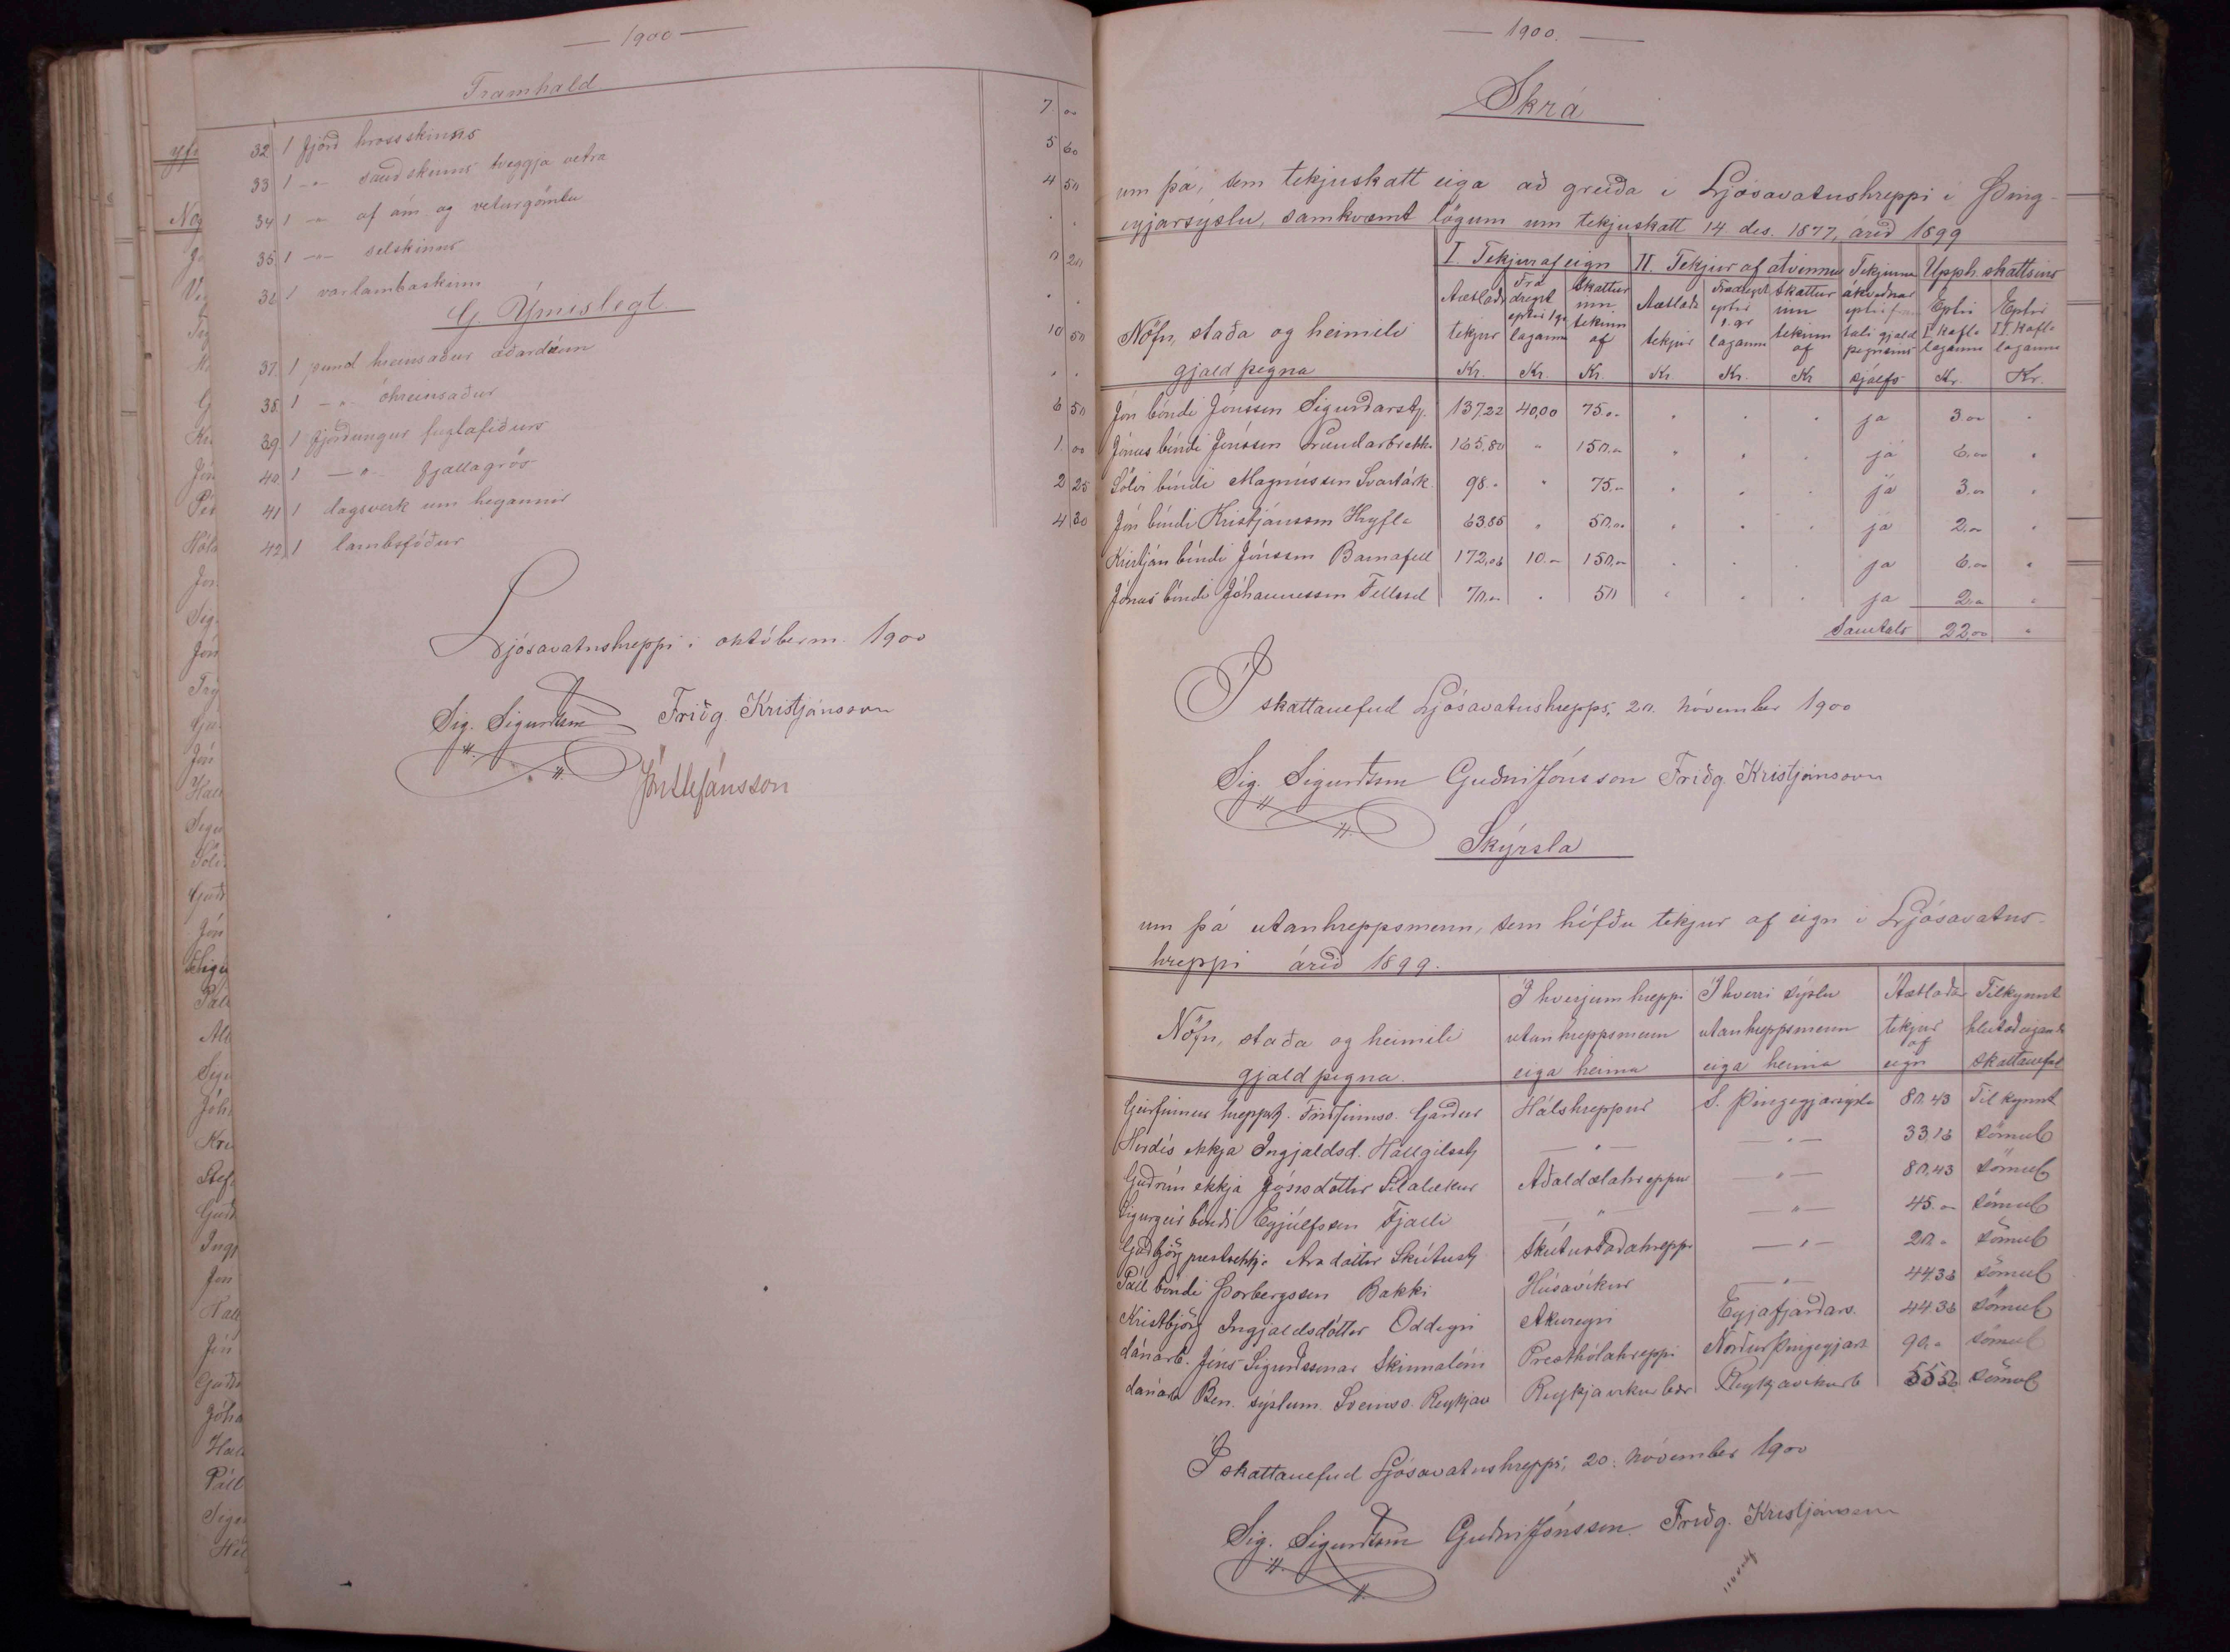 — 1900 —
Framhald
32 1 fjórð hrossskinns 7 00
33 1 —"— sauðskinns tveggja vetra 5 60
34 1 —"— af ám og veturgömlu 4 50
35 1 —"— selskinns . .
36 1 vorlambaskinn 0 20
G. Ýmislegt . .
37. 1 pund hreinsaður æðardúnn 10 50
38. 1 —"— óhreinsaður . .
39. 1 fjórðungur fuglafiðurs 6 50
40 1 —"— fjallagrös 1 00
41 1 dagsverk um heyannir 2 25
42 1 lambsfóður 4 20
Ljósavatnshreppi í októberm. 1900
Sig. Sigurðsson Friðg Kristjánsson
Jón Stefánsson
— 1900. —
Skrá
um þá, sem tekjuskatt eiga að greiða í Ljósavatnshreppi í Þing-
eyjarsýslu, samkvæmt lögum um tekjuskatt 14 des. 1877, árið 1899
I. Tekjur af eign II. Tekjur af atvinnu Tekjurnar Upph. skattsins
Nöfn, staða og heimili
gjaldþegna
Áætlaðar tekjur Kr.
Frá dregst eptir 1 gr laganna Kr.
Skattur inn tekinn af Kr.
Áætlaðr tekjur Kr.
Frádregst eptir laganna Kr.
Skattur inn tekinn af Kr
ákveðnar eptir tali gjald þegnsins sjálfs
Eptir I kafla laganna Kr.
Eptir II. kafla laganna Kr.
Jón bóndi Jónsson Sigurðarst. 137,22 40,00 75.00 " . . já 3 00 .
Jónas bóndi Jónsson Lundarbrekku 165,80 " 150," " . . já 6.00 "
Sölvi bóndi Magnússon Svartárk. 98." " 75." " . . já 3.00 "
Jón bóndi Kristjánsson Hryfla 63,85 " 50,00 " . . já 2,00 "
Kristján bóndi Jónsson Barnafell 172,06 10." 150," . . . já 6.00 "
Jónas bóndi Jóhannesson Fellssel 70," . 50 " . . já 2," "
Samtals 22 00 "
Í skattanefnd Ljósavatnshrepps, 20. nóvember 1900
Sig. Sigurðsson Guðni Jónsson Friðg. Kristjánsson
Skýrsla
um þá utanhreppsmenn, sem höfðu tekjur af eign í Ljósavatns-
hreppi árið 1899.
Nöfn, staða og heimili
gjaldþegna.
Í hverjum hreppi utanhreppsmenn eiga heima
Í hverri sýslu utanhreppsmenn eiga heima
Áætlaðar tekjur af eign
Tilkynnt hlutaðeigandi skattanefnd
Geirfinnur hreppstj. Friðfinnss. Garður Hálshreppur S. Þingeyjarsýsla 80.43 Tilkynnt
Herdís ekkja Ingjaldsd. Hallgilsst. —"— —"— 33,16 sömul
Guðrún ekkja Jónsdóttir Sílalækur Aðaldælahreppur —"— 80,43 sömul
Sigurgeir bóndi Eyjúlfsson Fjalli —"— —"— 45." sömul
Guðbjörg prestsekkja Aradóttir Skútust. Skútustaðahreppi —"— 20." sömul
Páll bóndi Þorbergsson Bakki Húsavíkur —"— 44.36 sömul
Kristbjörg Ingjaldsdóttir Oddeyri Akureyri Eyjafjarðars. 44.36 sömul
dánarb. Jóns Sigurðssonar Skinnalóni Presthólahreppi Norður Þingeyjars. 90," sömul
dánarb Ben. sýslum. Sveinss. Reykjav Reykjavíkur bær Reykjavíkurb 55 56 sömul
Í skattanefnd Ljósavatnshrepps, 20. nóvember 1900
Sig. Sigurðsson Guðni Jónsson. Friðg. Kristjánsson